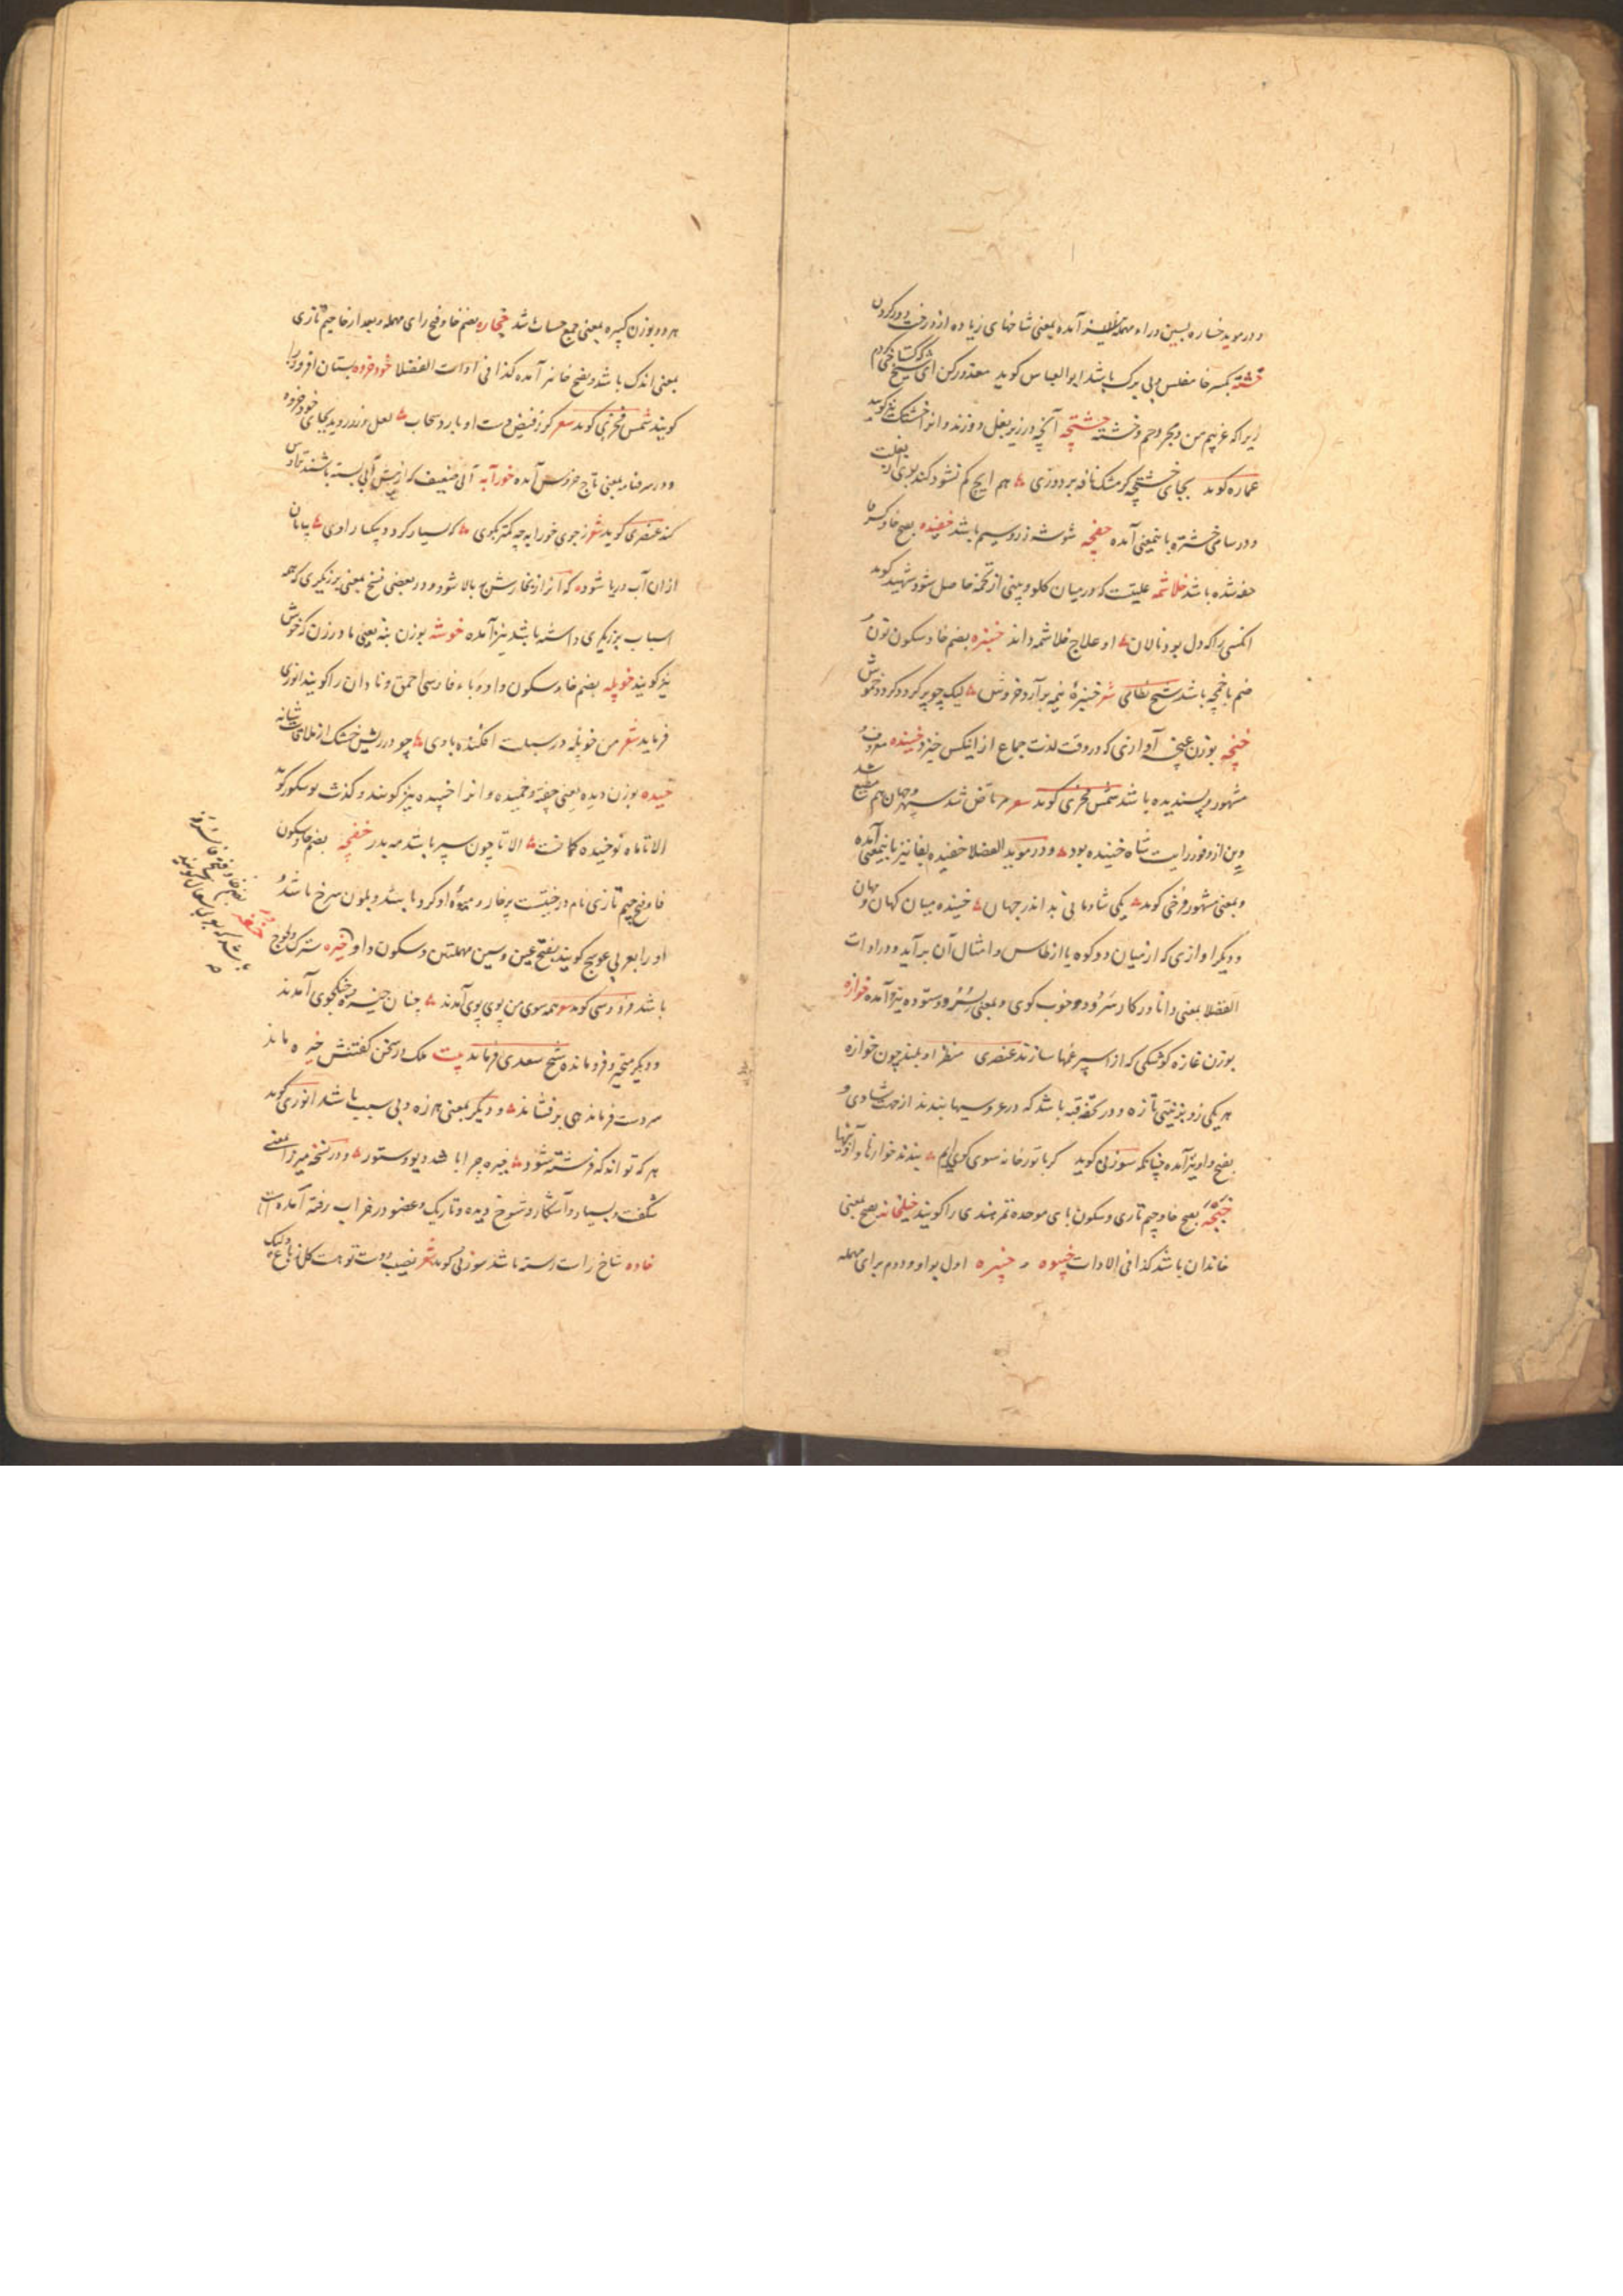 و در موید خساره بسین و راء مهمله نیز آمده بمعنی شاخهای زیاده از درخت دور کردن
خشته بکسر خا مفلس و بی برک باشد ابوالعباس کوید معذور کن ای شیخ که کستاخی کردم
زیراکه غریبم من و مجروحم و خشته خشتچه آنچه در زیر بغل دوزند و انرا خشتک نیز کویند
عماره کوید بجای خشتچه کر مشک نافه بر دوزی هم ایچ کم نشود کند بوی از بغلت
و در سامی خشتره باینمعنی آمده خفچه شوشه زر و سیم باشد خفیده بفتح خا و کسر فا
خفه شده باشد خلاشمه علتیست که در میان کلو و بینی از تخمه حاصل شود شهید کوید
انکسی را که دل بود نالان او علاج خلاشمه داند خنبره بضم خا و سکون نون
خم باخمچه باشد شیخ نظامی شعر خنبره نیمه برآرد خروش لیک چو پر کردد کردد خموش
خنچه بوزن غنچه آوازی که در وقت لذت جماع از انکس خیزد خنیده معروف و
مشهور و پسندیده باشد شمس فخری کوید شعر مرتاض شد سپهر و جهان هم مطیع شد
وین از وفور رایت شاه خنیده بود و در موید الفضلا خفیده بفا نیز باینمعنی آمده
و بمعنی مشهور فرخی کوید یکی شادمانی بد اندر جهان خنیده میان کهان و مهان
و دیکر اوازی که از میان دو کوه یا از طاس و امثال آن برآید و در ادات
الفضلا بمعنی دانا در کار سرود و خوب کوی و بمعنی سرود و ستوده نیز آمده خوازه
بوزن غازه کوشکی که از اسپرغمها سازند عنصری منظر او بلند چون خوازه
هر یکی زو بزینتی تازه و در تحفه قبه باشد که در عروسیها بندند از جهت شادی و
بفتح واو نیز آمده چنانکه سوزنی کوید کر با تو زخانه سوی کوی آیم بندند خوازها و آذینها
خبجه بفتح خا و جیم تازی و سکون بای موحده تمر هندی را کویند خیلخانه بفتح بمعنی
خاندان باشد کذا فی الادات خپیوه و خپیره اول بواو و دوم برای مهمله
هر دو بوزن کبیره بمعنی جمع حساب باشد خجاره بضم خا و فتح رای مهمله و بعد از خا جیم تازی
بمعنی اندک باشد و بفتح خا نیز آمده کذا فی ادات الفضلا خود خروه بستان افروز را
کویند شمس فخری کوید شعر کر ز فیض دست او بارد سحاب لعل و زر روید بجای خود خروه
و در سرفنامه بمعنی تاج خروس آمده خورآبه آبی ضعیف که از پیش آبی بسته باشند تراوش
کند عنصری کوید شعر ز جوی خورابه چه کمتر بکوی که بسیار کردد بیکبار اوی بیابان
از ان آب دریا شود که ابر از بخارش بالا شود و در بعضی نسخ بمعنی برزیکری که همه
اسباب برزیکری داشته باشد نیز آمده خوشه بوزن بنه یعنی مادر زن که خوش
نیز کویند خویله بضم خا و سکون واو و باء فارسی احمق و نادان را کویند انوری
فرماید شعر من خویله در سبلت افکنده بادی چو در ریش خشک از ملاقات شانه
خمیده بوزن دیده یعنی چفته و خمیده و انرا خپیده نیز کویند و کذشت بوشکور کوید
الا تا ماه نو خمیده کمانست الا تا چون سپر باشد مه بدر خفجه بضم خا و سکون
فا و فتح جیم تازی نام درختیست پرخار و میوه او کرد باشد و بلون سرخ باشد و
او را بعربی عوسج کویند بفتح عین و سین مهملتین و سکون واو خیره سترک و لجوج
باشد فردوسی کوید شعر همه سوی من پوی پوی آمدند چنان خیره و جنکجوی آمدند
و دیکر متحیر و فرومانده شیخ سعدی فرماید بیت ملک در سخن کفتنش خیره ماند
سر دست فرماندهی برفشاند و دیکر بمعنی هرزه و بی سبب باشد انوری کوید
هر که تواند که فرشته شود خیره چرا باشد دیو و ستور و در نسخه میرزا بمعنی
شکفت و بسیار و آشکار و شوخ دیده و تاریک و عضو در خراب رفته آمده است
خاده شاخ راست رسته باشد سوزنی کوید شعر نصیب دوست تو هست کل ز باغ